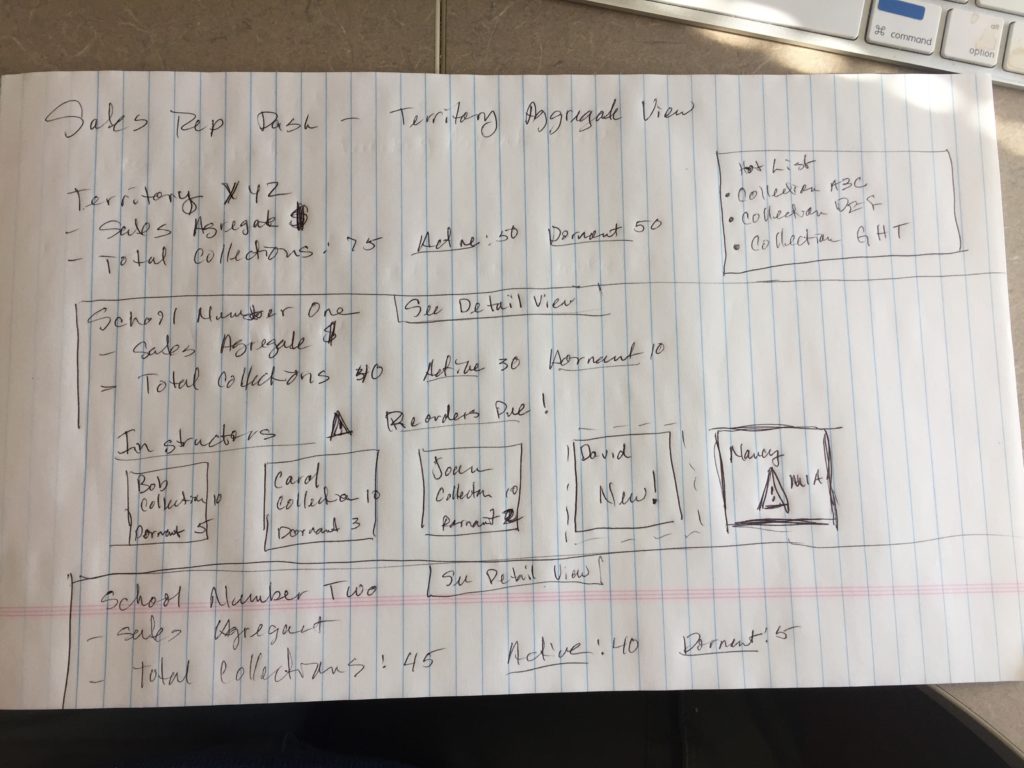 ⌘ command
alt
option
Sales Rep Dash - Territory Aggregate View
Hot List
• Collection ABC
• Collection DEF
• Collection GHT
Territory 42
- Sales Agregate $
- Total Collections: 75 Active: 50 Dormant 50
School Number One See Detail View
- Sales Agregate $
- Total Collections 40 Active 30 Dormant 10
Instructors ! Reorders Due!
Bob
Collection 10
Dormant 5
Carol
Collection 10
Dormant 3
Joan
Collection 10
Dormant 2
David
New!
Nancy
! MIA
School Number Two See Detail View
- Sales
- Total Collections: 45 Active: 40 Dormant: 5